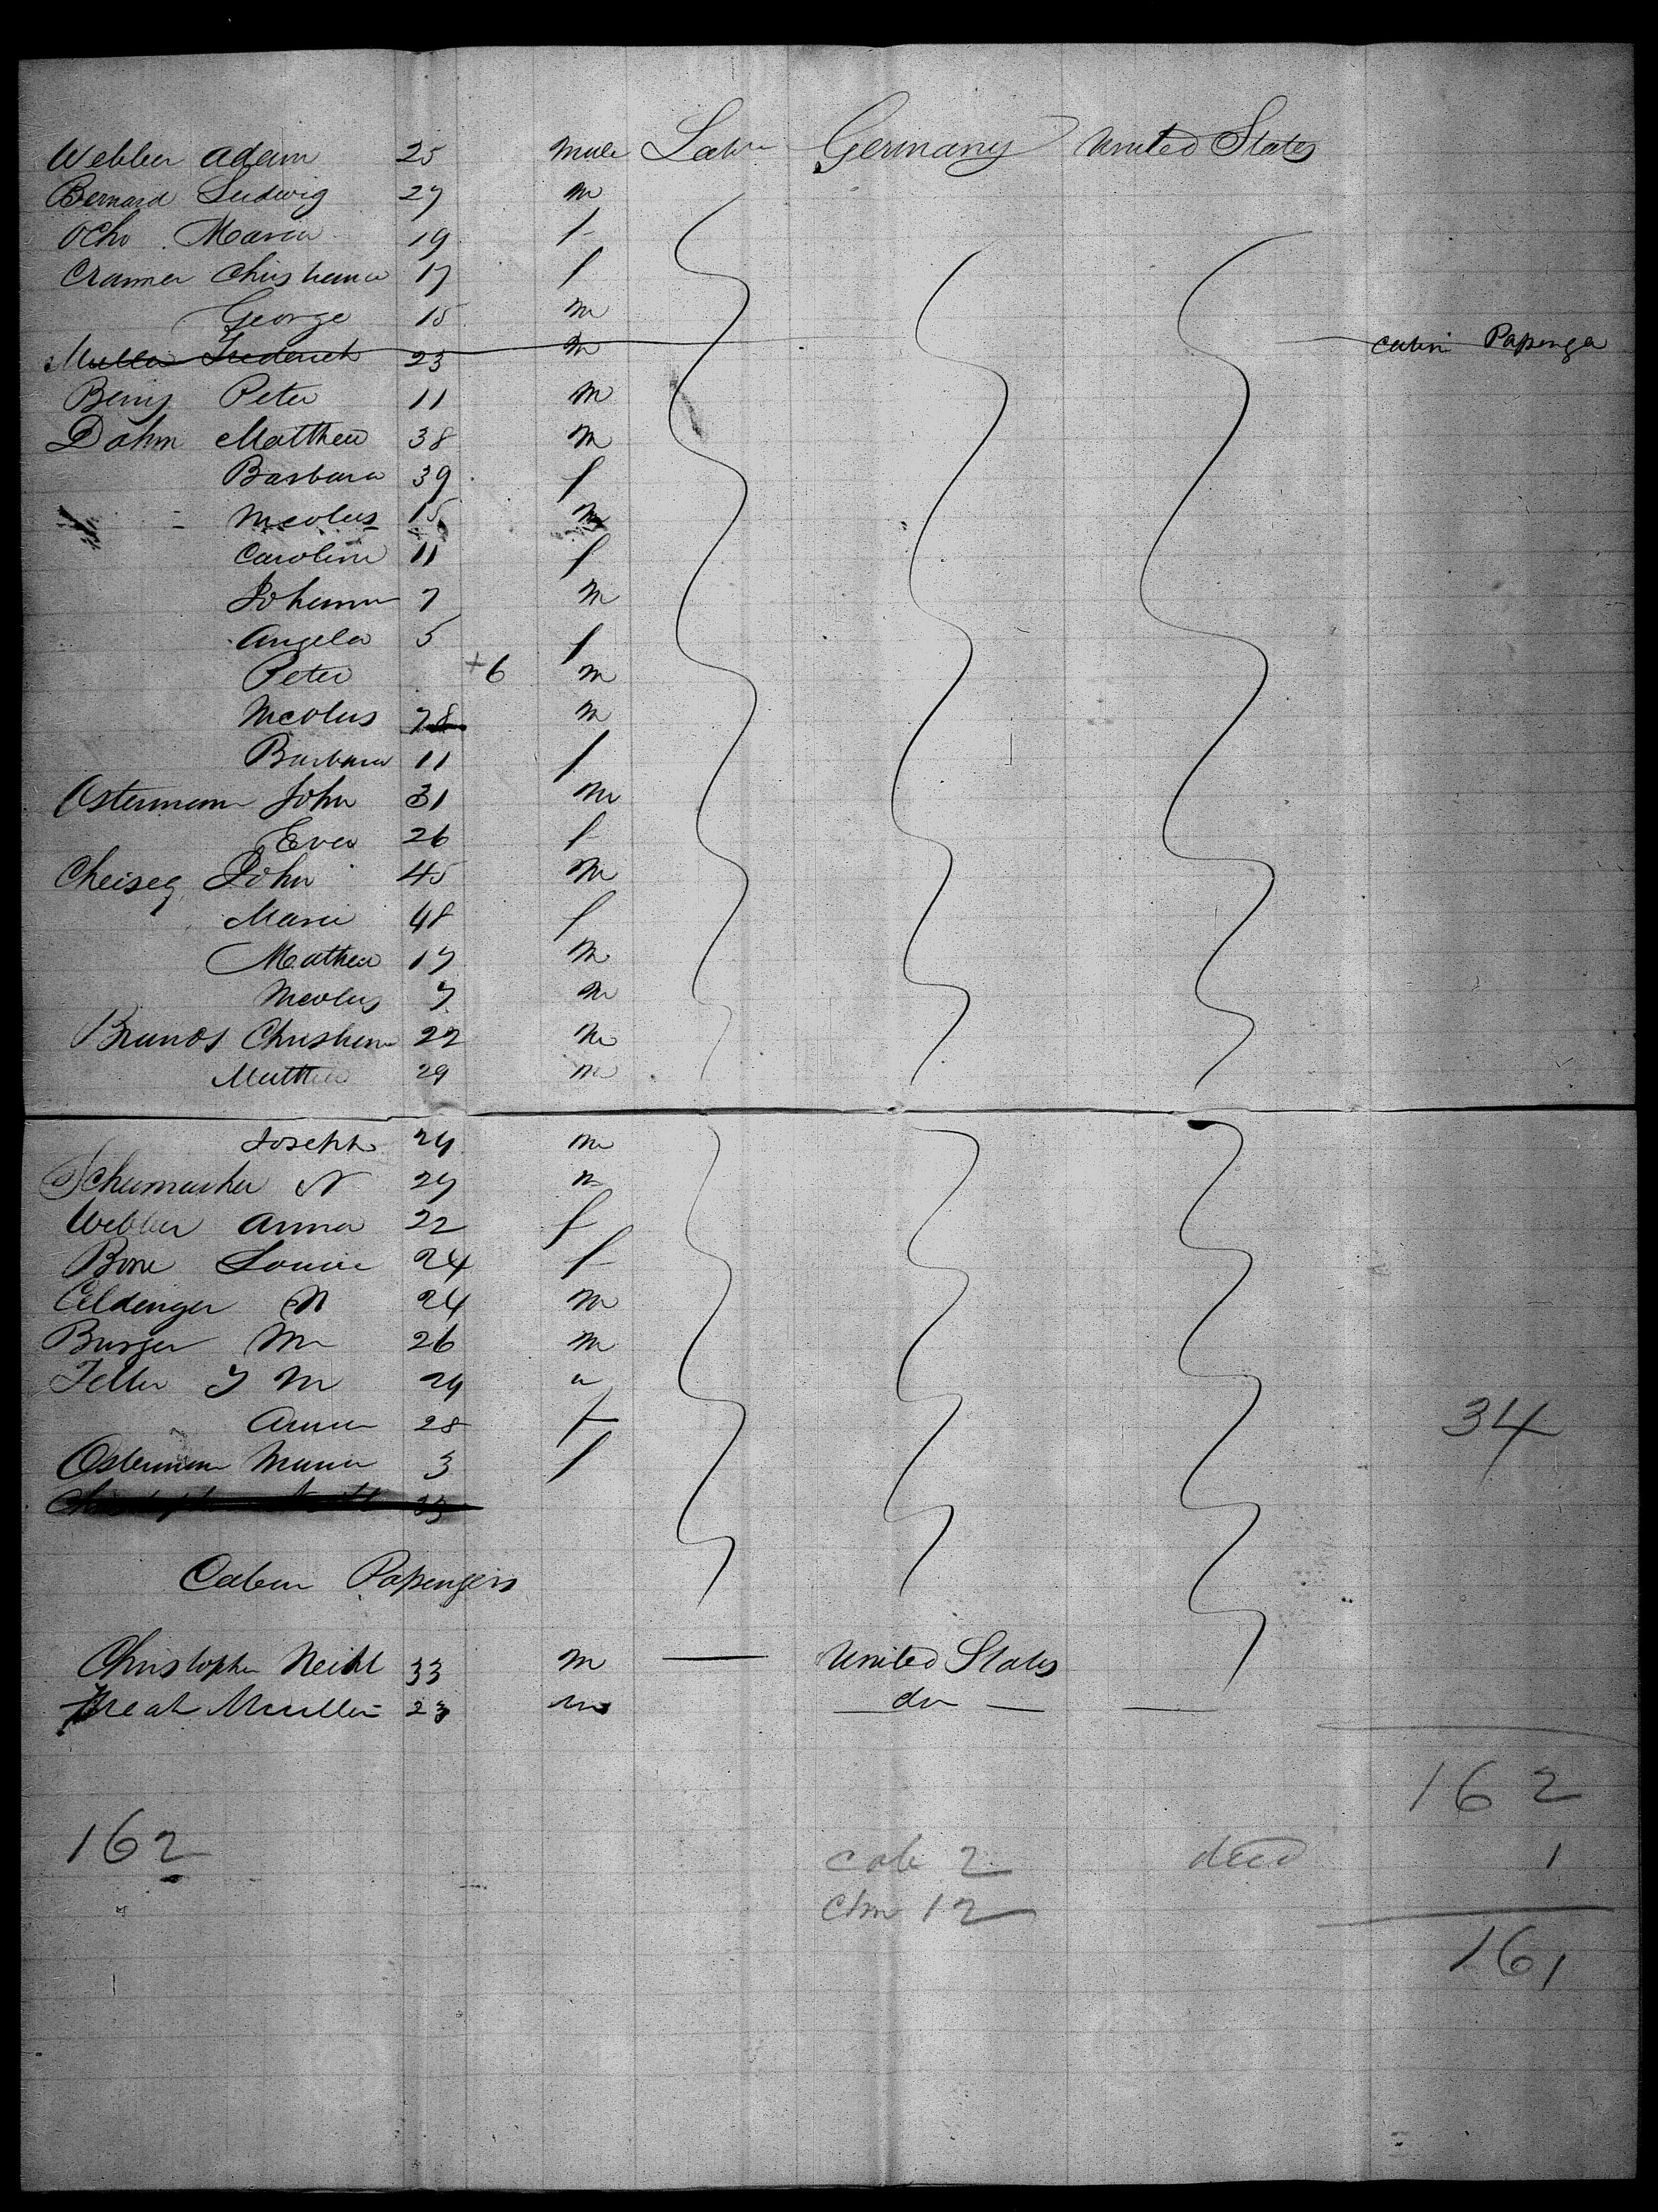 Webber Adam 25 male Labr Germany United States
Bernard Ludwig 27 m
Ocho Maria 19 f
Cramer Christiana 17 f
George 15 m
Muller Frederick 23 m Cabin Passenga
Beny Peter 11 m
Dahm Matthew 38 m
Barbara 39 f
Nicolus 15 m
Caroline 11 f
Johann 7 m
Angela 5 f
Peter +6 m
Nicolus 78 m
Barbara 11 f
Ostermann John 31 m
Eva 26 f
Cheiseg John 45 m
Marie 48 f
Mathew 17 m
Nicolus 7 m
Brunds Christian 22 m
Matthew 29 m
Joseph 24 m
Schumacher N 27 m
Webber Anna 22 f
Bone Louise 24 f
Eldenger N 24 m
Burger M 26 m
Feller J M 29 m
Anna 28 f 34
Ostermann Maria 3 f
33
Cabin Passengers
Christopher Neihl 33 m — United States
Freak Muller 23 m — do — —
162
162 cab 2 decd 1
Chn 12
161